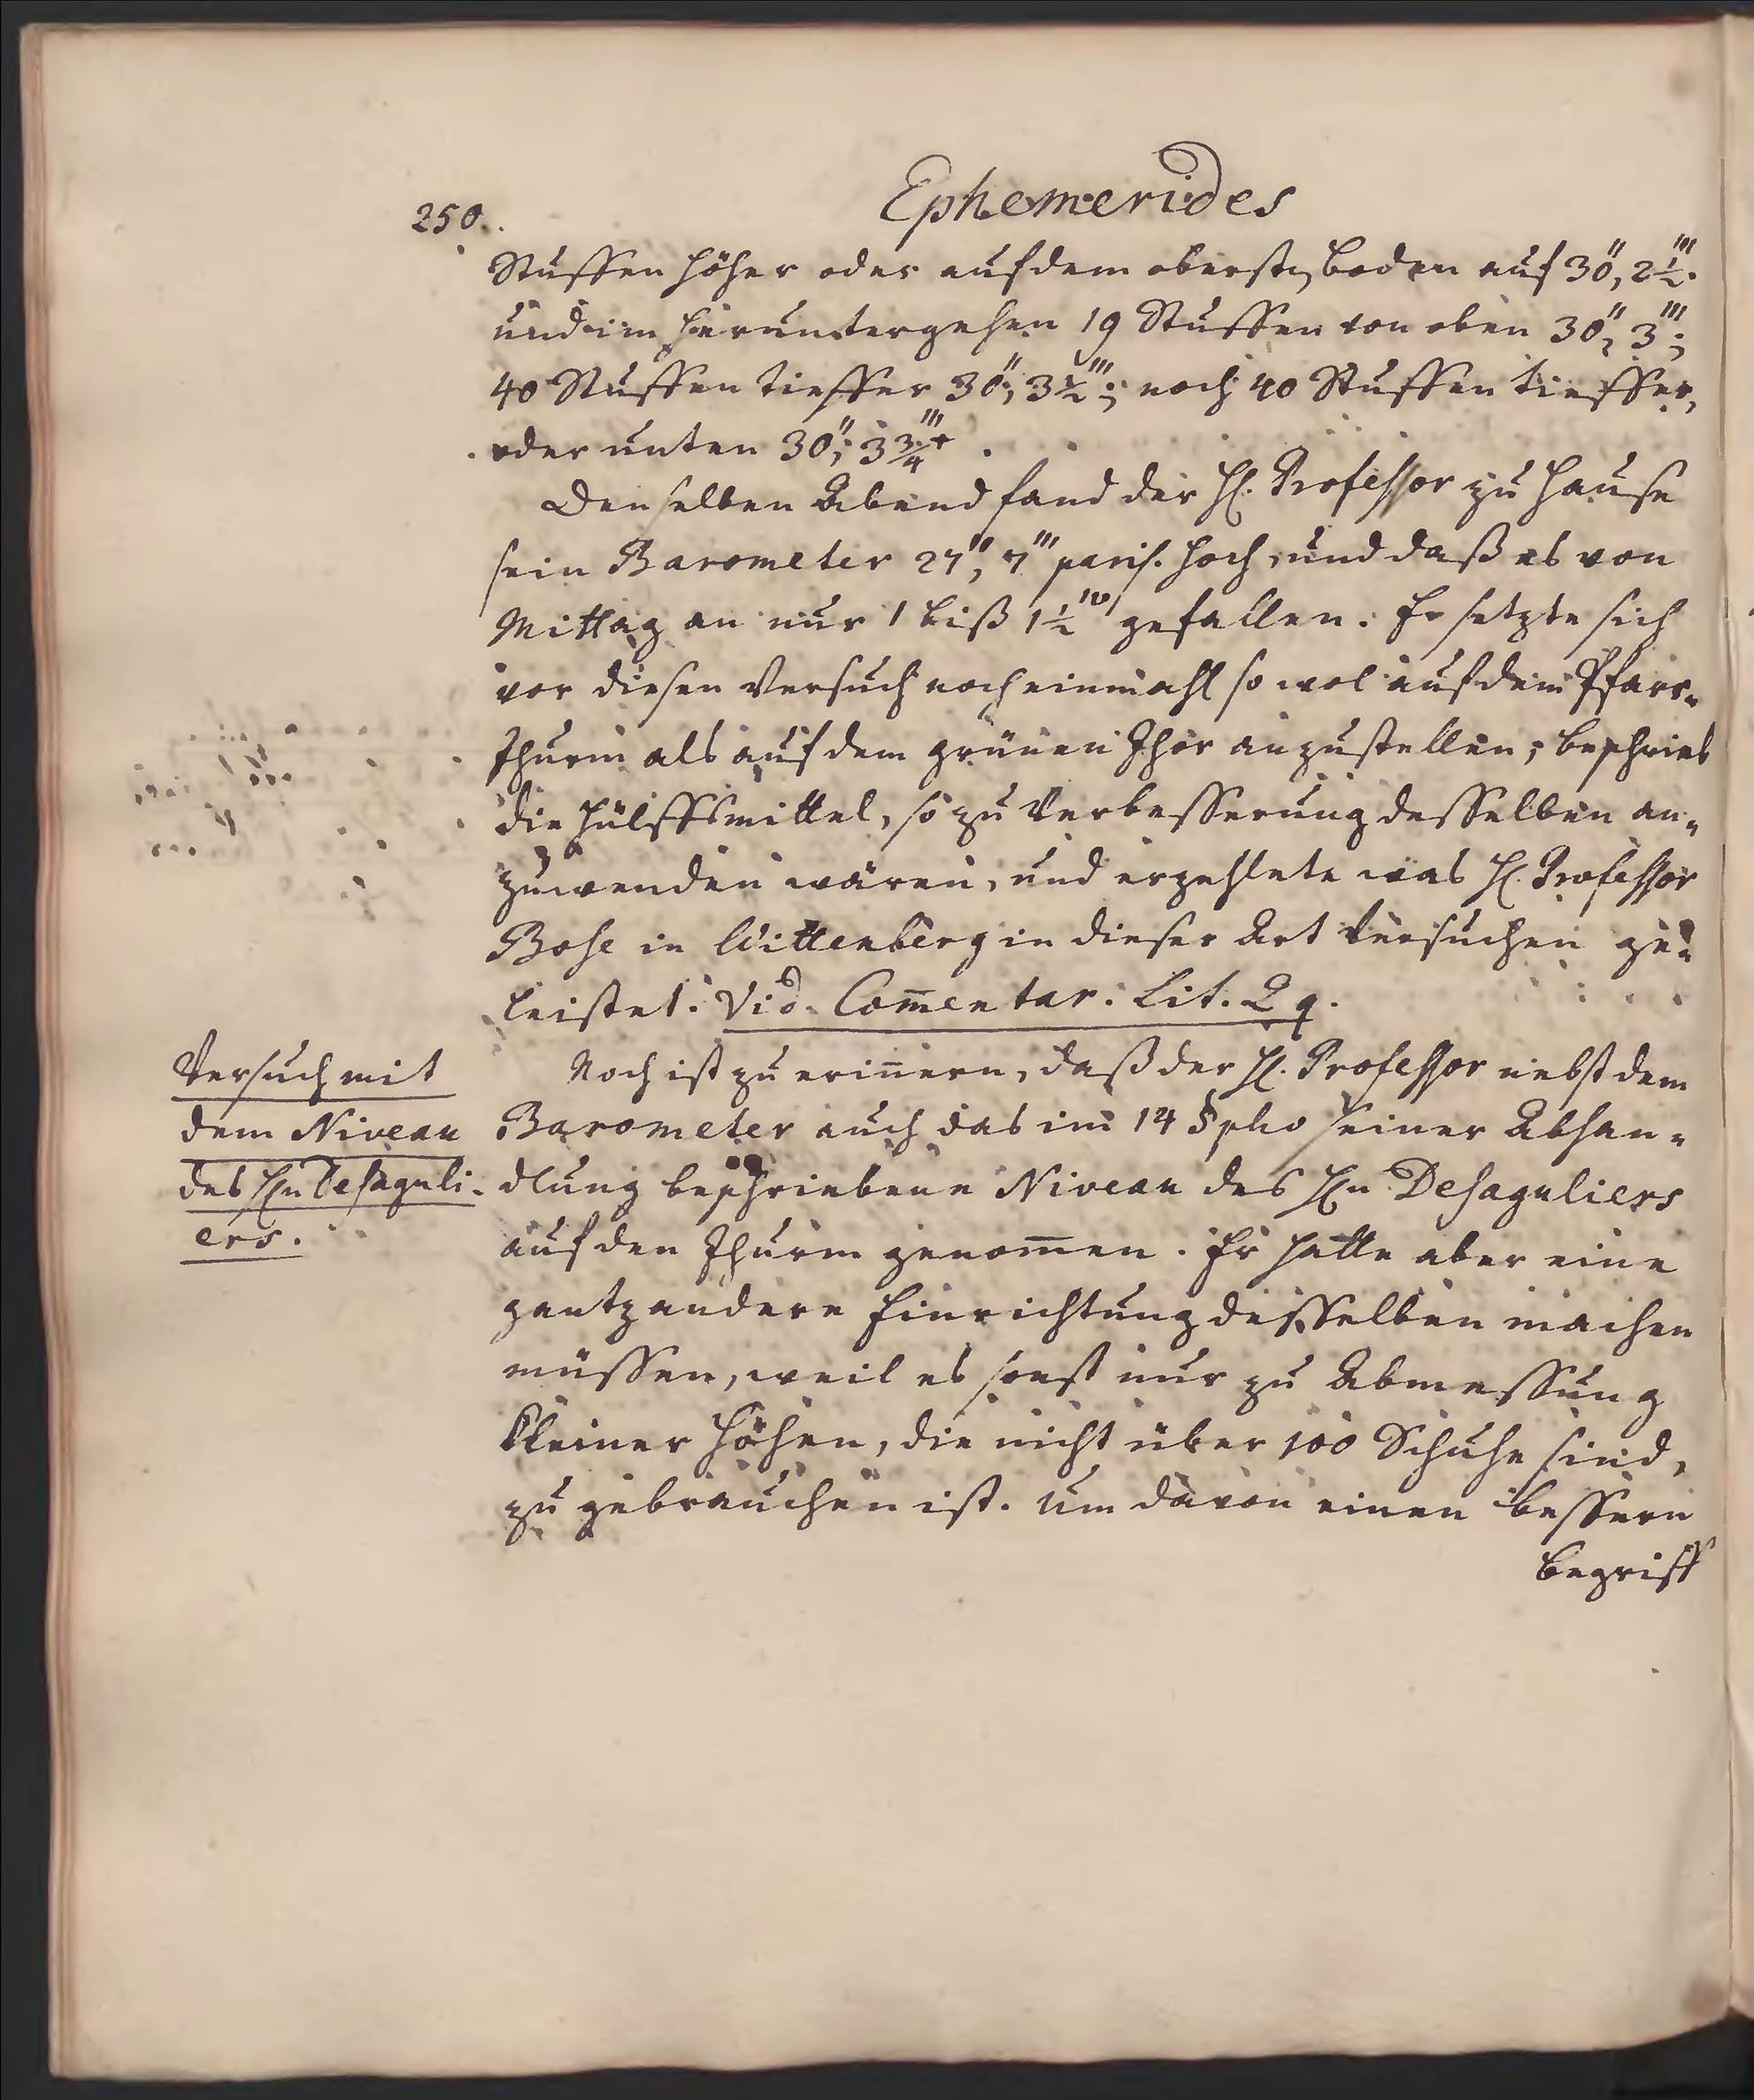 250.
Ephemerides
Stuffen höher oder auf dem obersten Boden auf 30'', 2½'''.
und im heruntergehen 19 Stuffen von oben 30'', 3''';
40 Stuffen tieffer 30'', 3½'''; noch 40 Stuffen tieffer,
oder unten 30'', 3¾'''+
Denselben Abend fand der H. Professor zu Hause
sein Barometer 27'', 7''' paris. hoch, und daß es von
Mittag an nur 1 biß 1½'ᵛ gefallen. Er setzte sich
vor diesen Versuch noch einmahl so wol auf dem Pfarr-
Thurm als auf dem grünen Thor anzustellen; beschrieb
die Hülffsmittel, so zu Verbesserung desselben an-
zuwenden wären, und erzehlete was H. Professor
Bose in Wittenberg in dieser Art Versuchen ge-
leistet. Vid. Com̅entar. Lit. Qq.
Versuch mit
dem Niveau
des Hn Desaguli-
ers.
Noch ist zu erin̅ern, daß der H. Professor nebst dem
Barometer auch das im 14 §pho seiner Abhan-
dlung beschriebene Niveau des Hn Desaguliers
auf den Thurm genom̅en. Er hatte aber eine
gantz andere Einrichtung desselben machen
müssen, weil es sonst nur zu Abmessung
kleiner Höhen, die nicht über 100 Schuhe sind,
zu gebrauchen ist. Um davon einen bessern
Begriff